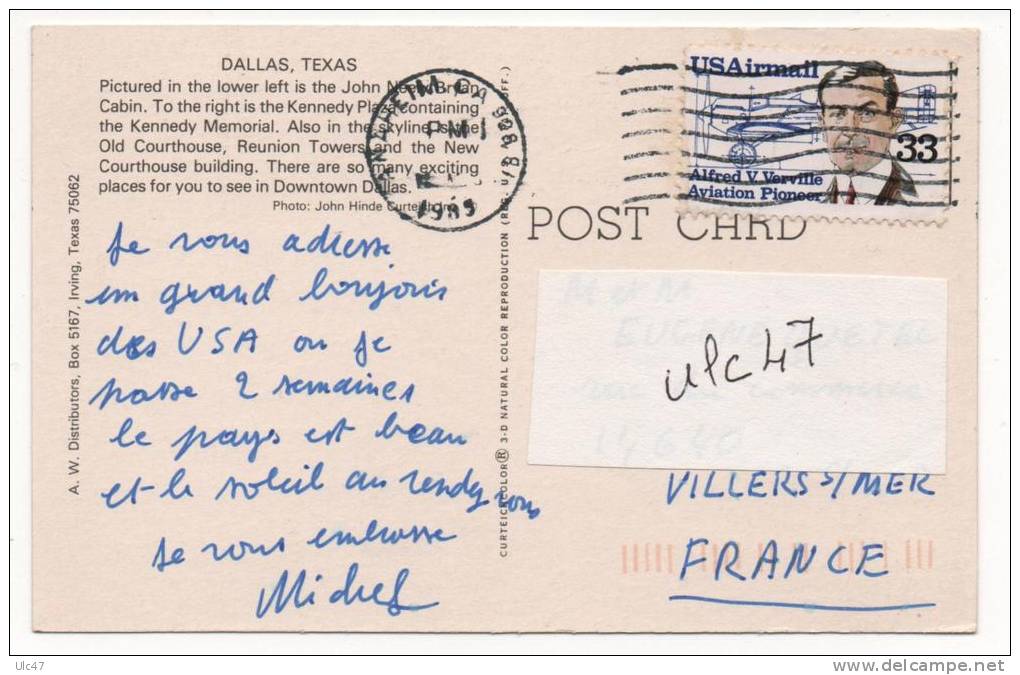 DALLAS, TEXAS
Pictured in the lower left is the John Neely Bryan
Cabin. To the right is the Kennedy Plaza containing
the Kennedy Memorial. Also in the skyline is the
Old Courthouse, Reunion Towers and the New
Courthouse building. There are so many exciting
places for you to see in Downtown Dallas.
Photo: John Hinde Curteich, Inc.
A. W. Distributors, Box 5167, Irving, Texas 75062
Je vous adresse
un grand bonjour
des USA ou je
passe 2 semaines
le pays est beau
et le soleil au rendez vous
Je vous embrasse
Michel
CURTEICHCOLOR® 3-D NATURAL COLOR REPRODUCTION (REG. U.S.A. PAT. OFF.)
ANAHEIM CA 928
PM
1989
USAirmail
33
Alfred V Verville
Aviation Pioneer
POST CARD
M et M
EUGENE
14640
ulc47
VILLERS S/MER
FRANCE
Ulc47
www.delcampe.net